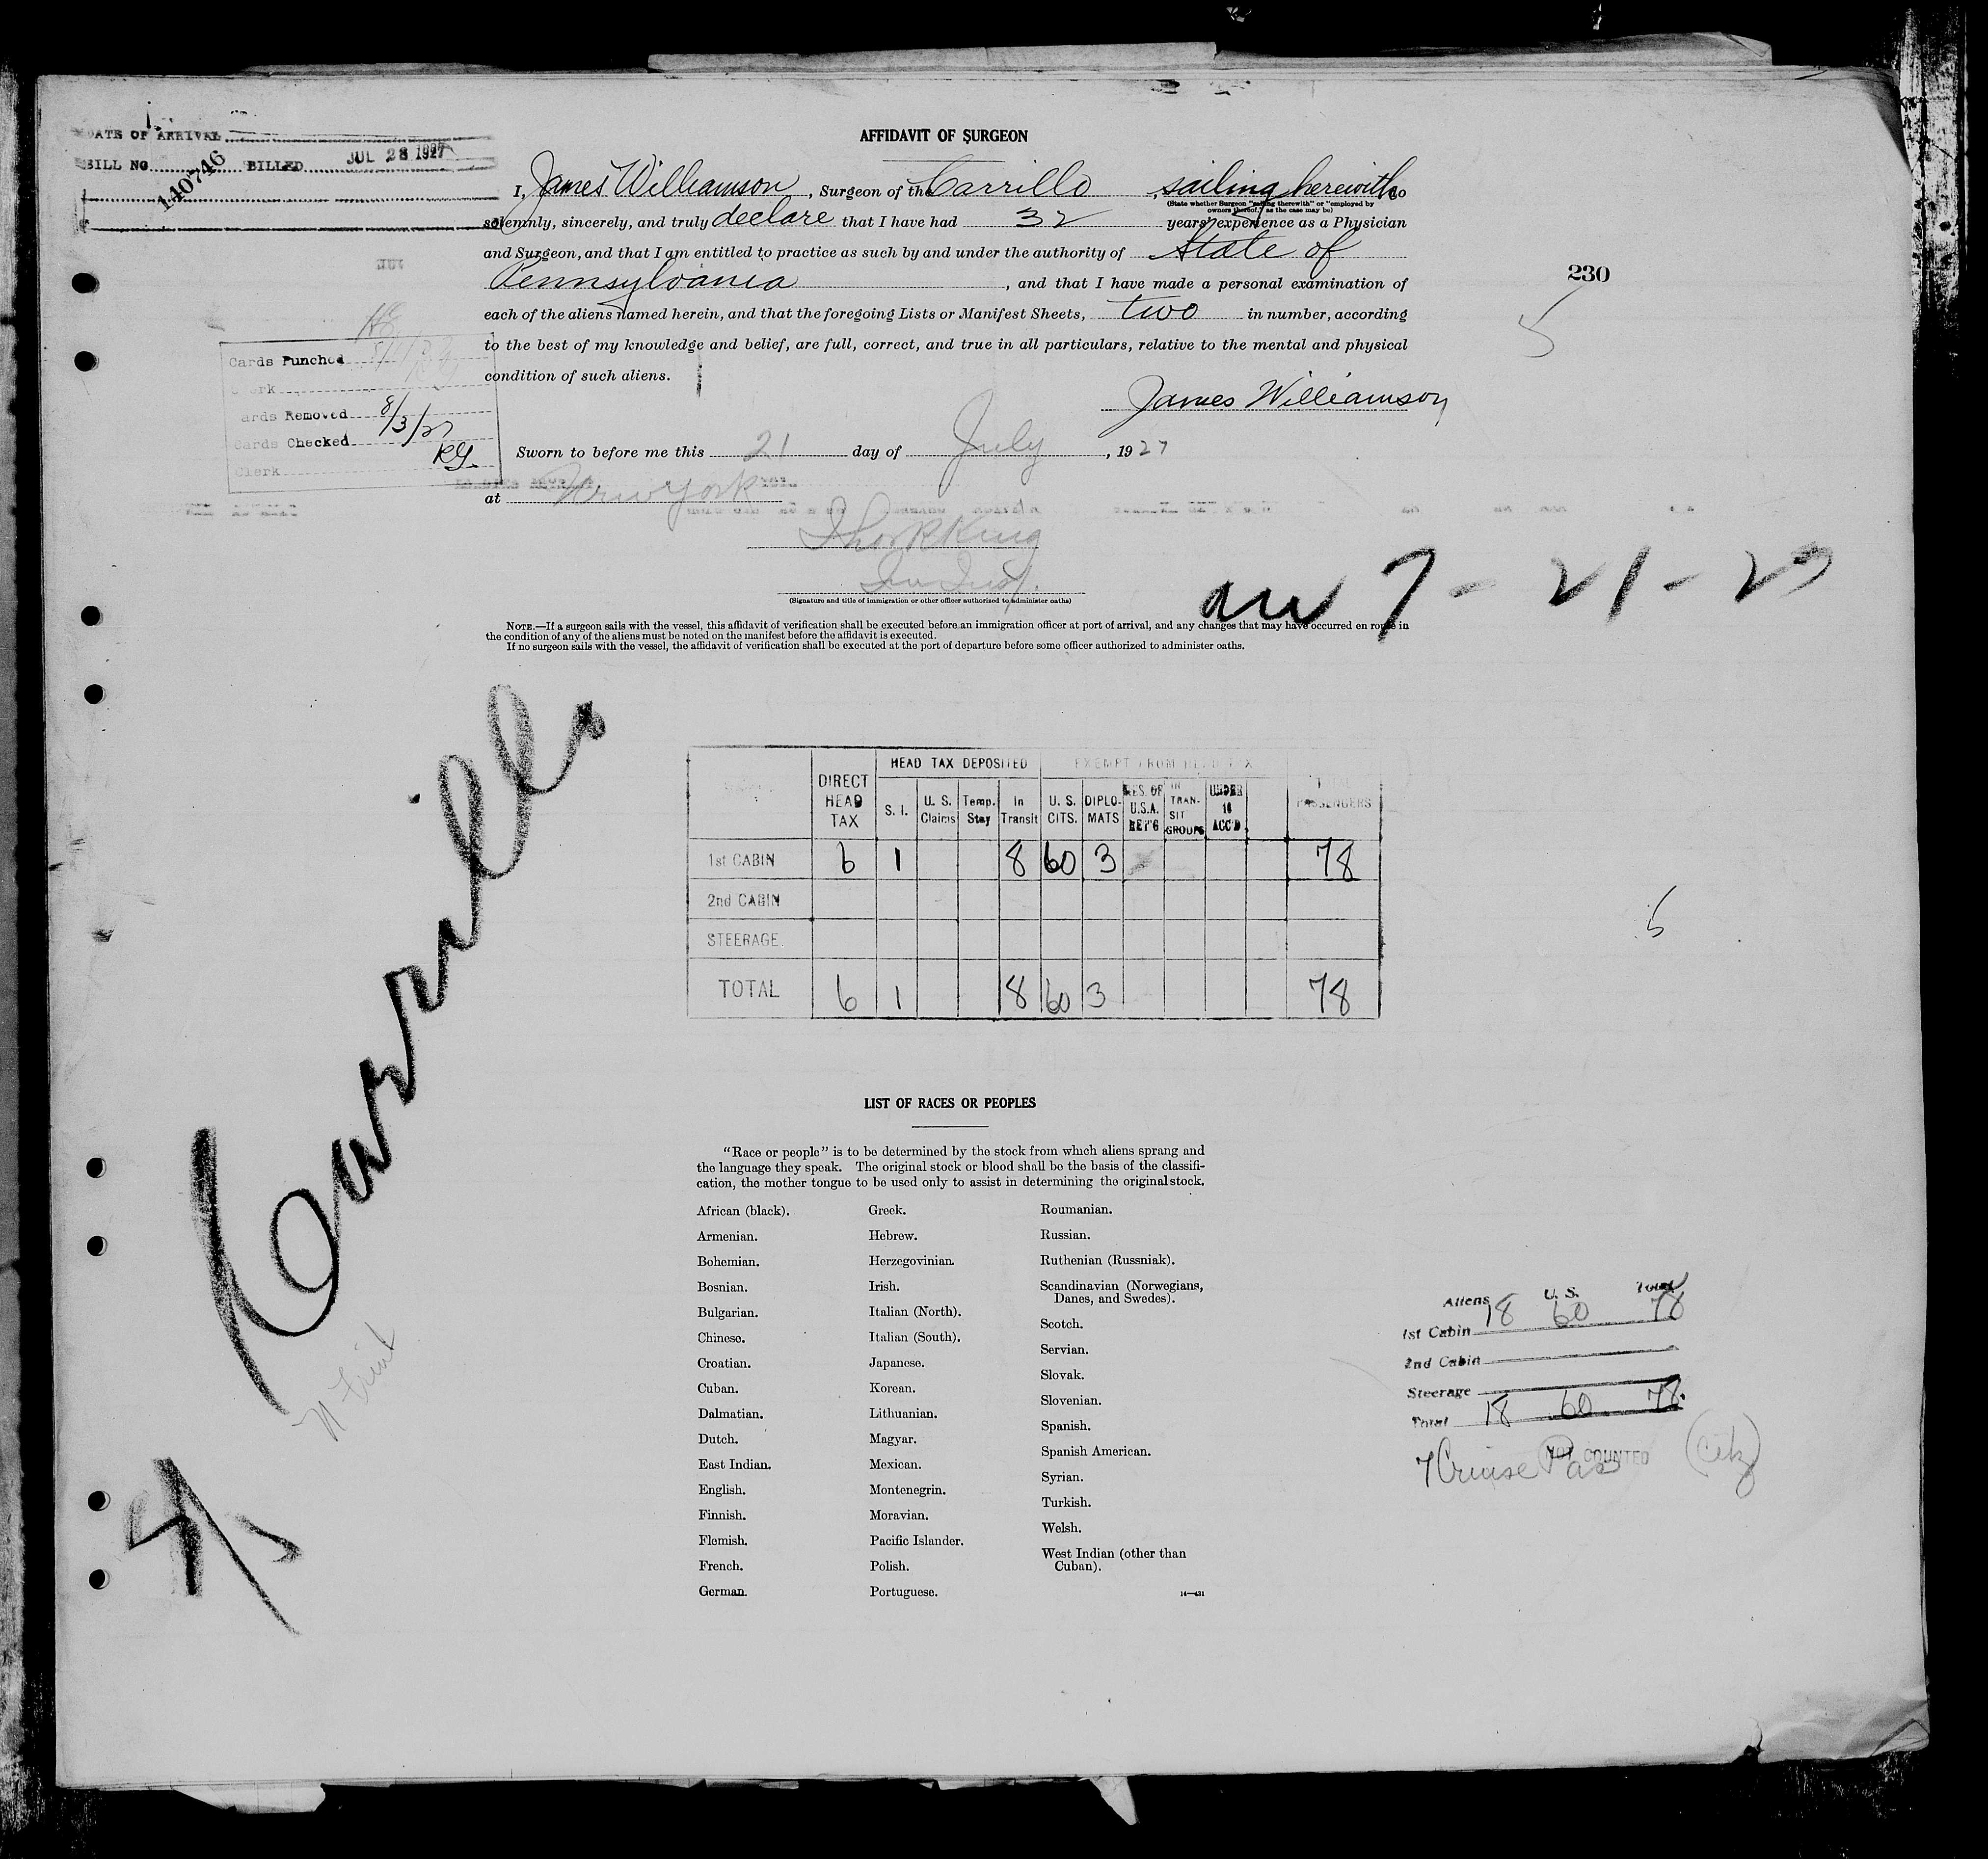 DATE OF ARRIVAL
BILL NO. 140746 BILLED JUL 28 1927
AFFIDAVIT OF SURGEON
I, James Williamson, Surgeon of the Carrillo, sailing herewith do
(State whether Surgeon "sailing therewith" or "employed by
owners thereof," as the case may be)
solemnly, sincerely, and truly declare that I have had 32 years' experience as a Physician
and Surgeon, and that I am entitled to practice as such by and under the authority of State of
Pennsylvania, and that I have made a personal examination of
each of the aliens named herein, and that the foregoing Lists or Manifest Sheets, two in number, according
to the best of my knowledge and belief, are full, correct, and true in all particulars, relative to the mental and physical
condition of such aliens.
230
5
James Williamson
Cards Punched
Clerk
Cards Removed 8/3/27
Cards Checked
Clerk RG.
Sworn to before me this 21 day of July, 1927
at New York
King
(Signature and title of immigration or other officer authorized to administer oaths)
7-21-27
NOTE.—If a surgeon sails with the vessel, this affidavit of verification shall be executed before an immigration officer at port of arrival, and any changes that may have occurred en route in
the condition of any of the aliens must be noted on the manifest before the affidavit is executed.
If no surgeon sails with the vessel, the affidavit of verification shall be executed at the port of departure before some officer authorized to administer oaths.
Carrillo
DIRECT HEAD TAX
HEAD TAX DEPOSITED
EXEMPT FROM HEAD TAX
TOTAL PASSENGERS
S. I.
U. S. Claims
Temp. Stay
In Transit
U. S. CITS.
DIPLO-MATS
RES. OF U.S.A. RET'G
IN TRAN-SIT GROUPS
UNDER 16 ACC'D
1st CABIN 6 1 8 60 3 78
2nd CABIN
STEERAGE
TOTAL 6 1 8 60 3 78
5
LIST OF RACES OR PEOPLES
"Race or people" is to be determined by the stock from which aliens sprang and
the language they speak. The original stock or blood shall be the basis of the classifi-
cation, the mother tongue to be used only to assist in determining the original stock.
African (black).
Armenian.
Bohemian.
Bosnian.
Bulgarian.
Chinese.
Croatian.
Cuban.
Dalmatian.
Dutch.
East Indian.
English.
Finnish.
Flemish.
French.
German.
Greek.
Hebrew.
Herzegovinian.
Irish.
Italian (North).
Italian (South).
Japanese.
Korean.
Lithuanian.
Magyar.
Mexican.
Montenegrin.
Moravian.
Pacific Islander.
Polish.
Portuguese.
Roumanian.
Russian.
Ruthenian (Russniak).
Scandinavian (Norwegians,
Danes, and Swedes).
Scotch.
Servian.
Slovak.
Slovenian.
Spanish.
Spanish American.
Syrian.
Turkish.
Welsh.
West Indian (other than
Cuban).
14—431
Aliens U. S. Total
1st Cabin 18 60 78
2nd Cabin
Steerage
Total 18 60 78
7 Cruise Pas
NOT COUNTED